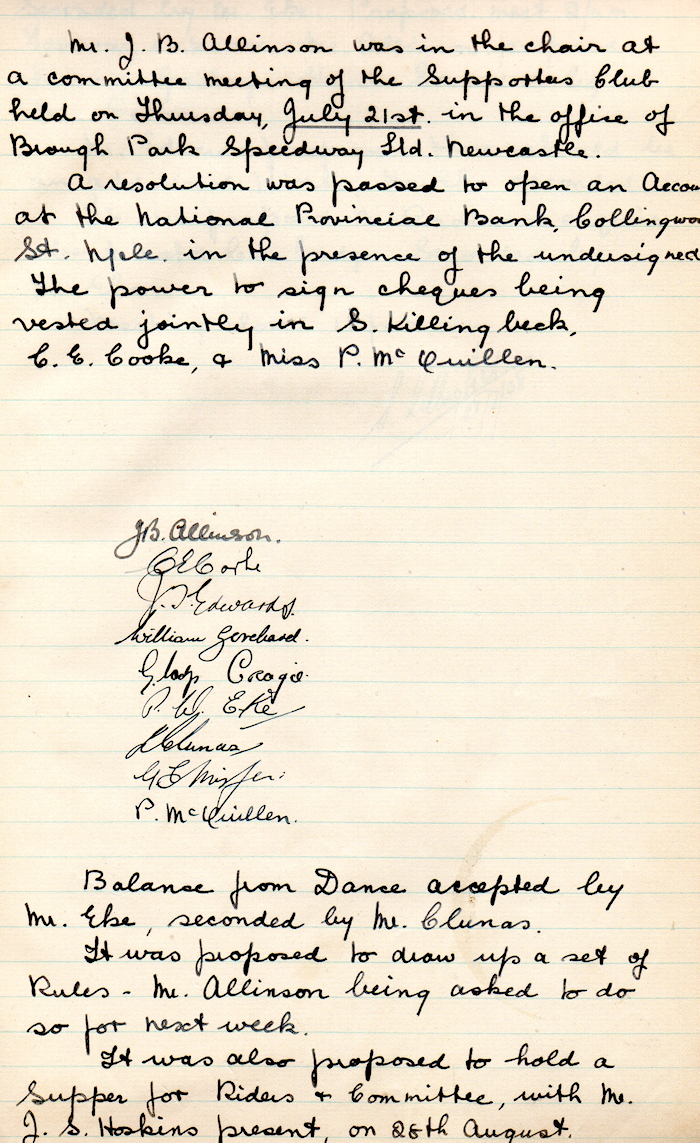 Mr. J. B. Allinson was in the chair at
a committee meeting of the Supporters Club
held on Thursday, July 21st. in the office of
Brough Park Speedway Ltd. Newcastle.
A resolution was passed to open an Accou
at the National Provincial Bank, Collingwo
St. N/cle. in the presence of the undersigned
The power to sign cheques being
vested jointly in S. Killingbeck,
C. E. Cooke, & Miss P. McQuillen.
J.B. Allinson.
C E Cooke
J. T. Edwards.
William
P. W. Eke
Clunas
P. McQuillen.
Balance from Dance accepted by
Mr. Eke, seconded by Mr. Clunas.
It was proposed to draw up a set of
Rules - Mr. Allinson being asked to do
so for next week.
It was also proposed to hold a
Supper for Riders & Committee, with Mr.
J. S. Hoskins present, on 28th August.